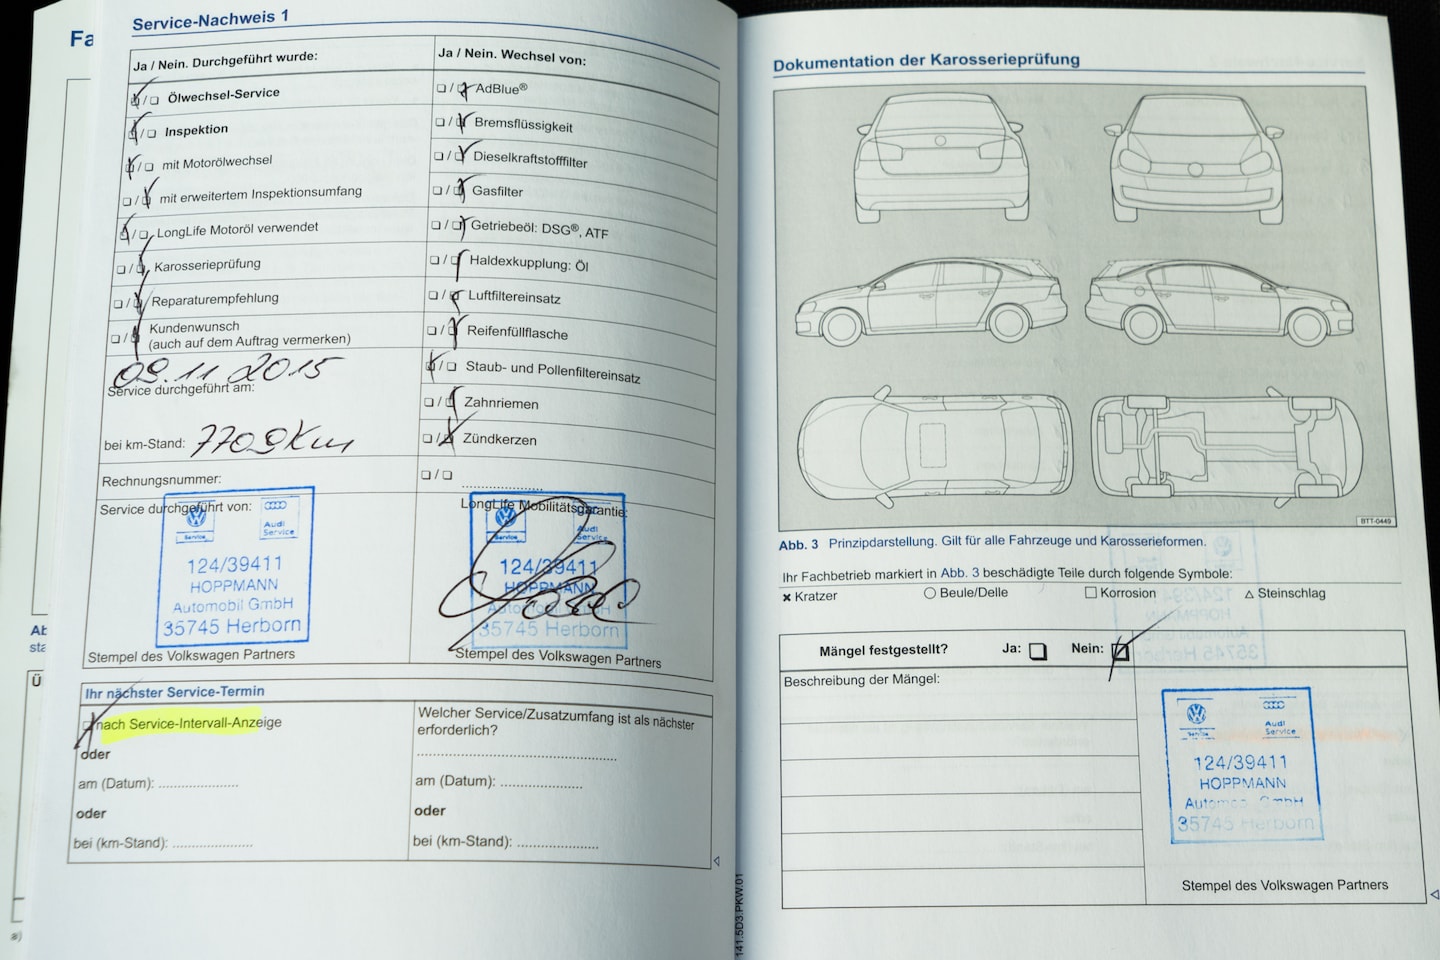 Fa
Service-Nachweis 1
Ja / Nein. Durchgeführt wurde:
Ölwechsel-Service
Inspektion
mit Motorölwechsel
mit erweitertem Inspektionsumfang
LongLife Motoröl verwendet
Karosserieprüfung
Reparaturempfehlung
Kundenwunsch
(auch auf dem Auftrag vermerken)
09.11.2015
Service durchgeführt am:
bei km-Stand: 7709 Km
Rechnungsnummer:
Service durchgeführt von:
Service
Audi
Service
124/39411
HOPPMANN
Automobil GmbH
35745 Herborn
Stempel des Volkswagen Partners
Ja / Nein. Wechsel von:
AdBlue®
Bremsflüssigkeit
Dieselkraftstofffilter
Gasfilter
Getriebeöl: DSG®, ATF
Haldexkupplung: Öl
Luftfiltereinsatz
Reifenfüllflasche
Staub- und Pollenfiltereinsatz
Zahnriemen
Zündkerzen
LongLife Mobilitätsgarantie:
Service
Audi
Service
124/39411
HOPPMANN
Automobil GmbH
35745 Herborn
Stempel des Volkswagen Partners
Ihr nächster Service-Termin
nach Service-Intervall-Anzeige
oder
am (Datum): ......................
oder
bei (km-Stand): ......................
Welcher Service/Zusatzumfang ist als nächster
erforderlich?
......................
am (Datum): ......................
oder
bei (km-Stand): ......................
141.5D3.PKW.01
Dokumentation der Karosserieprüfung
BTT-0449
Abb. 3 Prinzipdarstellung. Gilt für alle Fahrzeuge und Karosserieformen.
Ihr Fachbetrieb markiert in Abb. 3 beschädigte Teile durch folgende Symbole:
Kratzer
Beule/Delle
Korrosion
Steinschlag
Mängel festgestellt? Ja: Nein:
Beschreibung der Mängel:
Audi
Service
124/39411
HOPPMANN
Automobil GmbH
35745 Herborn
Stempel des Volkswagen Partners